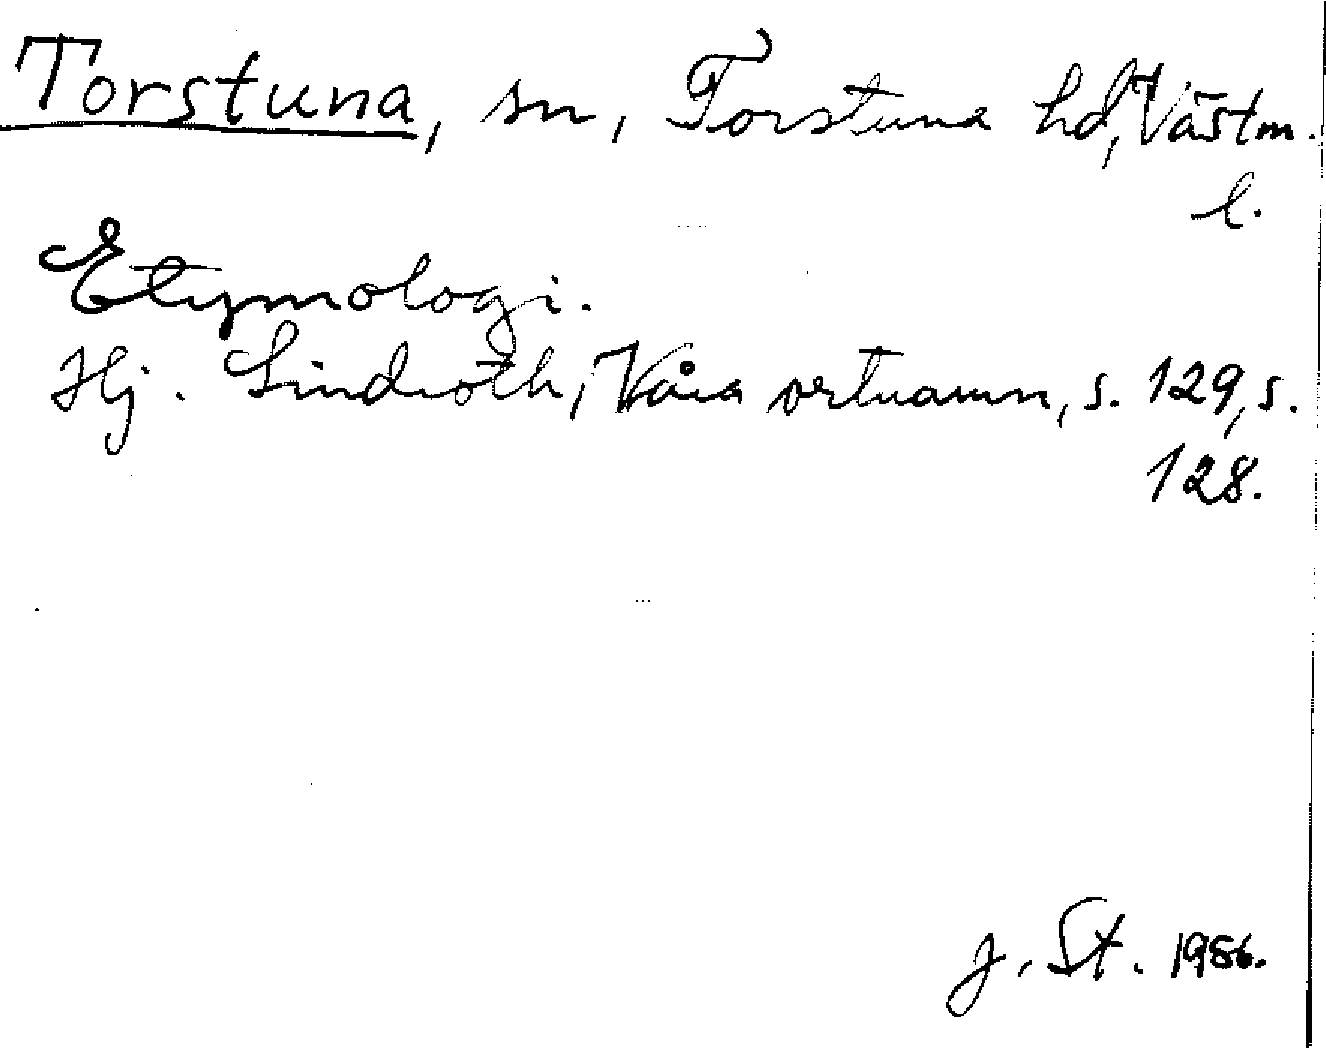 Torstuna, sn, Torstuna hd, Västm.
l.
Etymologi.
Hj. Lindroth, Våra ortnamn, s. 129, s.
128.
J. St. 1986.